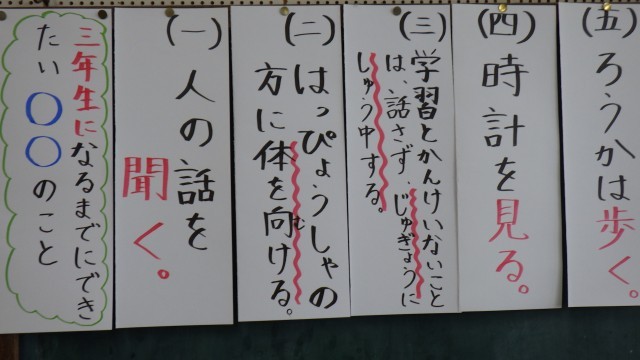 三年生になるまでにでき
たい〇〇のこと
(一)
人の話を
聞く。
(二)
はっぴょうしゃの
方に体を向ける。
む
(三)
学習とかんけいないこと
は、話さず、じゅぎょうに
しゅう中する。
(四)
時計を見る。
(五)
ろうかは歩く。